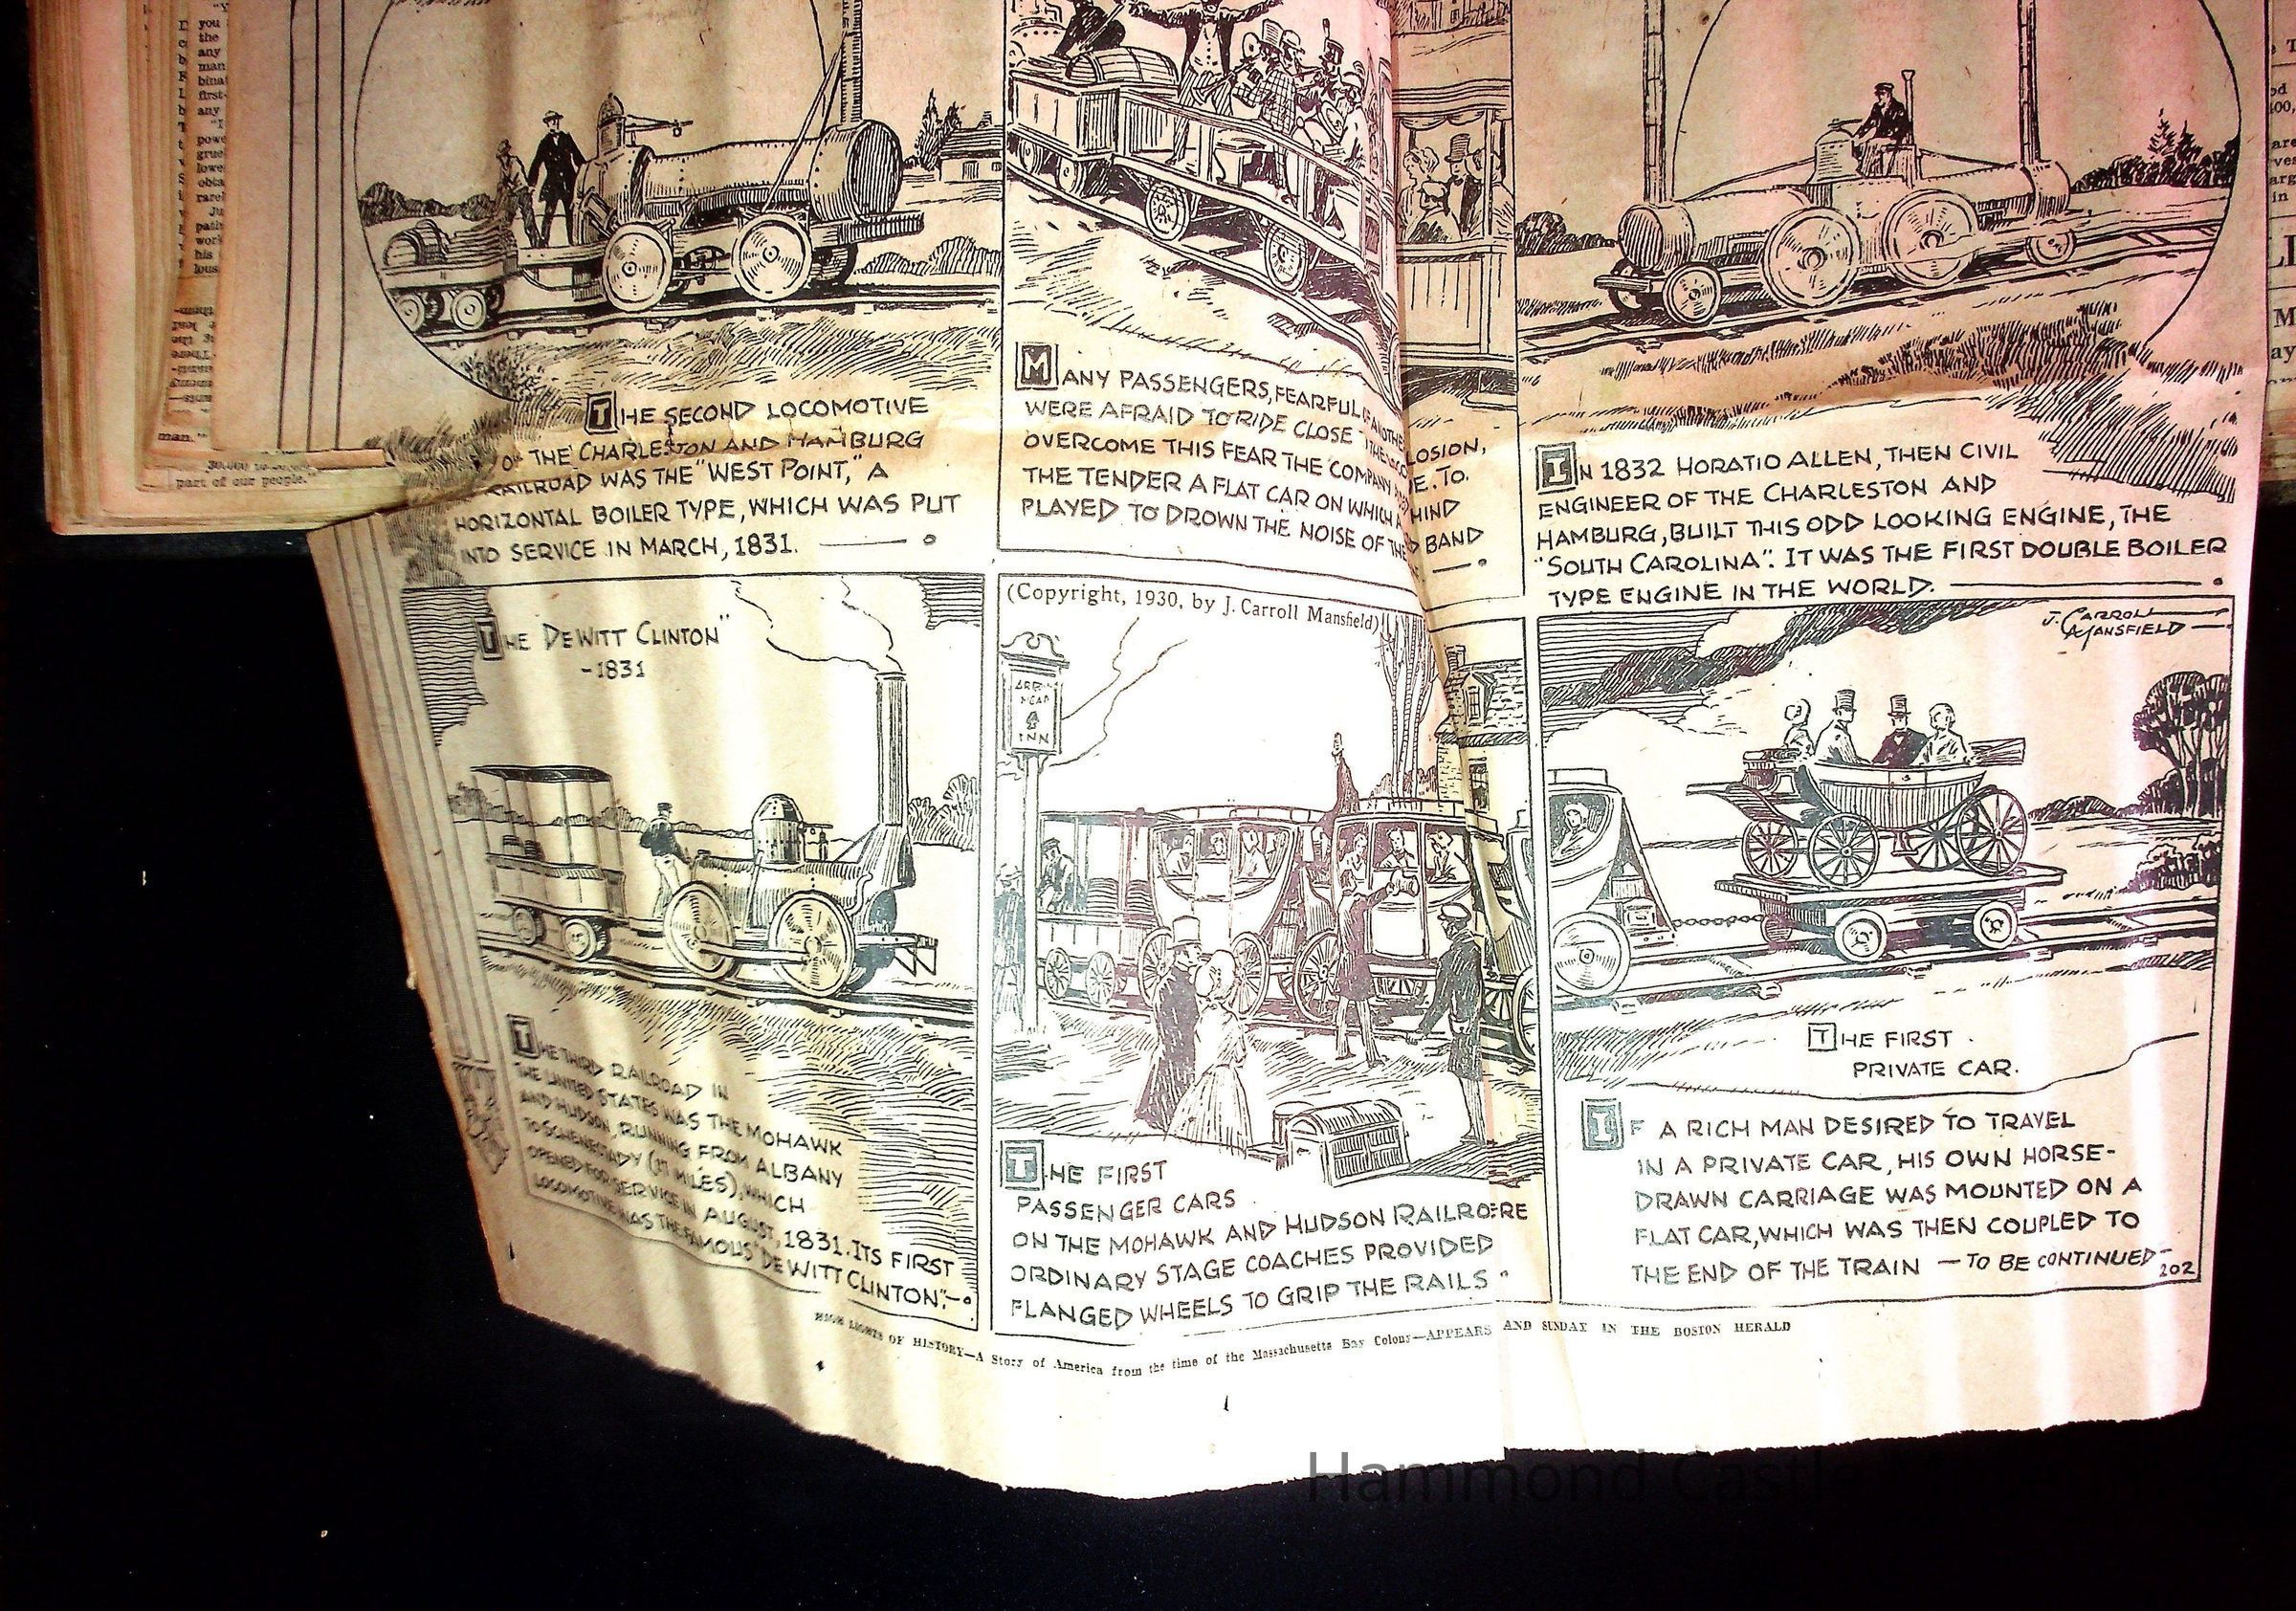 THE SECOND LOCOMOTIVE
OF THE CHARLESTON AND HAMBURG
RAILROAD WAS THE "WEST POINT," A
HORIZONTAL BOILER TYPE, WHICH WAS PUT
INTO SERVICE IN MARCH, 1831.
MANY PASSENGERS, FEARFUL OF ANOTHER
LOSION,
WERE AFRAID TO RIDE CLOSE
E. TO
OVERCOME THIS FEAR THE COMPANY
HIND
THE TENDER A FLAT CAR ON WHICH A
BAND
PLAYED TO DROWN THE NOISE OF THE
IN 1832 HORATIO ALLEN, THEN CIVIL
ENGINEER OF THE CHARLESTON AND
HAMBURG, BUILT THIS ODD LOOKING ENGINE, THE
"SOUTH CAROLINA". IT WAS THE FIRST DOUBLE BOILER
TYPE ENGINE IN THE WORLD.
THE "DEWITT CLINTON"
-1831
THE THIRD RAILROAD IN
THE UNITED STATES WAS THE MOHAWK
AND HUDSON, RUNNING FROM ALBANY
TO SCHENECTADY (17 MILES), WHICH
OPENED FOR SERVICE IN AUGUST, 1831. ITS FIRST
LOCOMOTIVE WAS THE FAMOUS "DE WITT CLINTON".
(Copyright, 1930, by J. Carroll Mansfield)
INN
THE FIRST
PASSENGER CARS
ON THE MOHAWK AND HUDSON RAILRO RE
ORDINARY STAGE COACHES PROVIDED
FLANGED WHEELS TO GRIP THE RAILS
J. CARROLL
MANSFIELD
THE FIRST
PRIVATE CAR.
IF A RICH MAN DESIRED TO TRAVEL
IN A PRIVATE CAR, HIS OWN HORSE-
DRAWN CARRIAGE WAS MOUNTED ON A
FLAT CAR, WHICH WAS THEN COUPLED TO
THE END OF THE TRAIN — TO BE CONTINUED-
202
HIGH LIGHTS OF HISTORY—A Story of America from the time of the Massachusetts Bay Colony—APPEARS AND SUNDAY IN THE BOSTON HERALD
man."
part of our people."
Hammond Castle